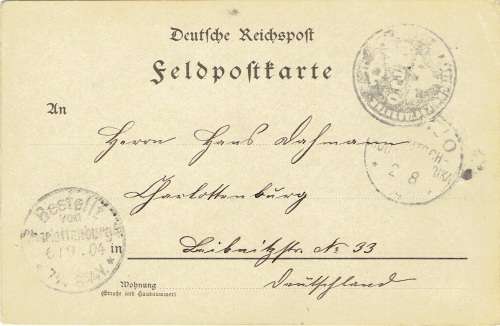 Deutsche Reichspost
Feldpostkarte
An
Herrn Hans Dahmann
Charlottenburg
in Leibnitzstr. No 33
Deutschland
Wohnung
(Straße und Hausnummer)
Bestellt
vom
Charlottenburg
2 8